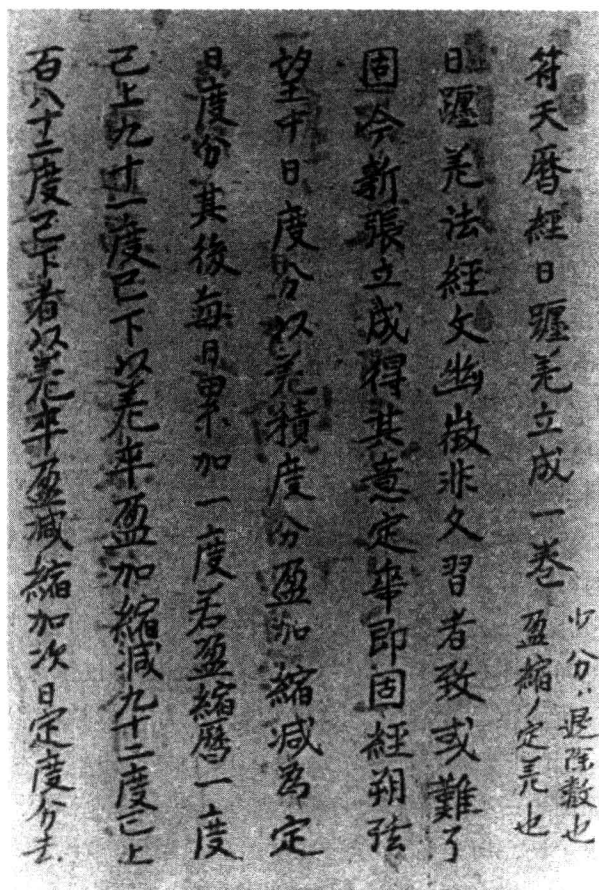 符天暦経日躔差立成一巻
少分ハ退除数也
盈縮ノ定差也
日躔差法経文幽微非久習者致或難了
固今新張立成得其意定率即固経朔弦
望中日度分以差積度分盈加縮減為定
日度分其後毎日累加一度若盈縮暦一度
已上九十一度已下以差率盈加縮減九十二度已上
百八十二度已下者以差率盈減縮加次日定度分